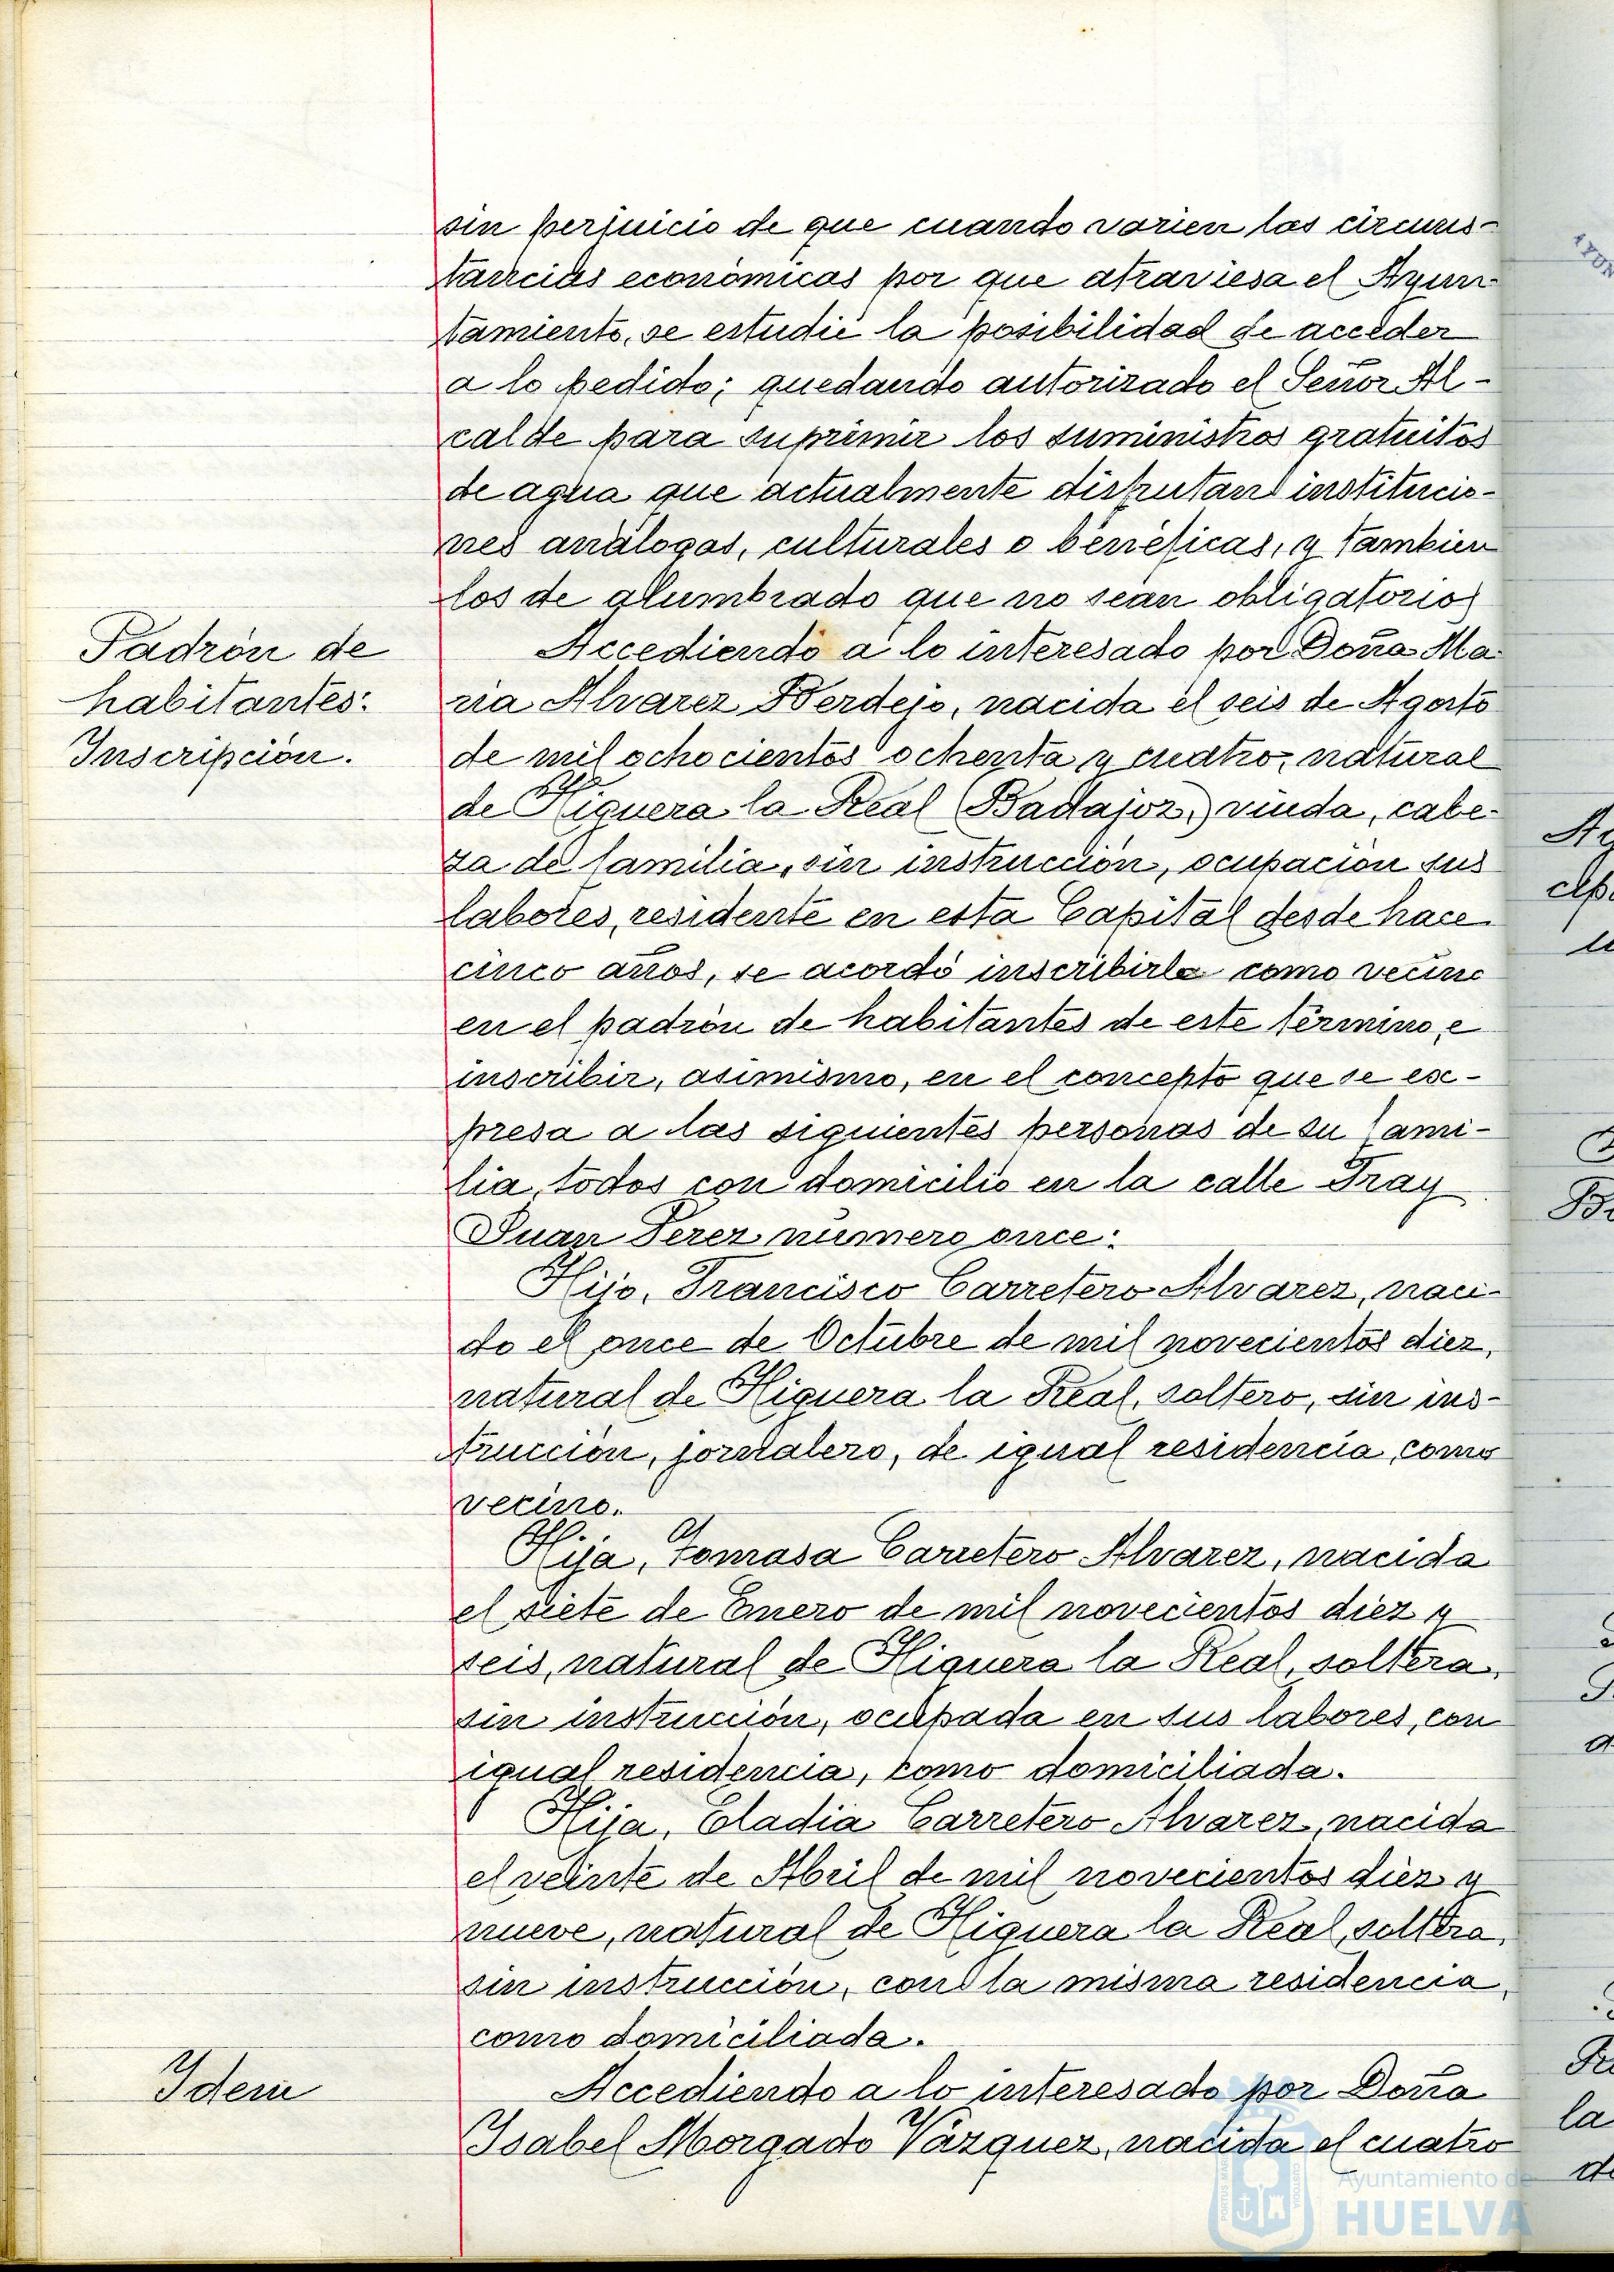 sin perjuicio de que cuando varien las circuns-
tancias económicas por que atraviesa el Ayun-
tamiento, se estudie la posibilidad de acceder
a lo pedido; quedando autorizado el Señor Al-
calde para suprimir los suministros gratuitos
de agua que actualmente disfrutan institucio-
nes análogas, culturales o benéficas, y tambien
los de alumbrado que no sean obligatorios
Padrón de
habitantes:
Inscripción.
Accediendo a lo interesado por Doña Ma-
ria Alvarez Berdejo, nacida el seis de Agosto
de mil ochocientos ochenta y cuatro, natural
de Higuera la Real (Badajoz,) viuda, cabe-
za de familia, sin instrucción, ocupacion sus
labores, residente en esta Capital desde hace
cinco años, se acordó inscribirla como vecino
en el padrón de habitantes de este término, e
inscribir, asimismo, en el concepto que se ex-
presa a las siguientes personas de su fami-
lia, todos con domicilio en la calle Fray
Juan Perez número once:
Hijo, Francisco Carretero Alvarez, naci-
do el once de Octubre de mil novecientos diez,
natural de Higuera la Real, soltero, sin ins-
trucción, jornalero, de igual residencia, como
vecino.
Hija, Tomasa Carretero Alvarez, nacida
el siete de Enero de mil novecientos diez y
seis, natural de Higuera la Real, soltera,
sin instrucción, ocupada en sus labores, con
igual residencia, como domiciliada.
Hija, Eladia Carretero Alvarez, nacida
el veinte de Abril de mil novecientos diez y
nueve, natural de Higuera la Real, soltera,
sin instrucción, con la misma residencia,
como domiciliada.
Idem
Accediendo a lo interesado por Doña
Isabel Morgado Vázquez, nacida el cuatro
Ayuntamiento de
HUELVA